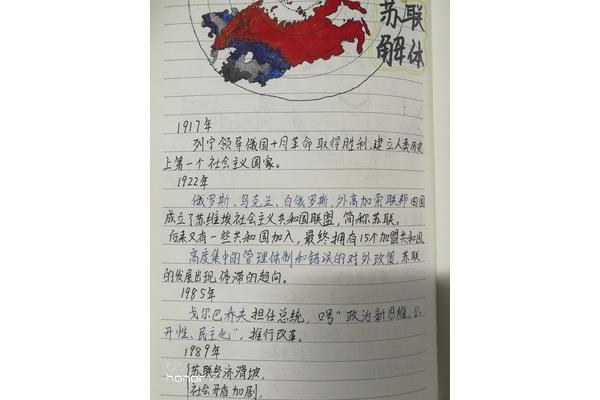 苏联
解体
1917年
列宁领导俄国十月革命取得胜利,建立人类历史
上第一个社会主义国家。
1922年
俄罗斯、乌克兰、白俄罗斯、外高加索联邦四国
成立了苏维埃社会主义共和国联盟,简称苏联。
后来又有一些共和国加入,最终拥有15个加盟共和国
高度集中的管理体制和错误的对外政策,苏联
的发展出现停滞的趋向。
1985年
戈尔巴乔夫担任总统,口号"政治新思维、公
开性、民主化",推行改革。
1989年
苏联经济滑坡,
社会矛盾加剧,
honor